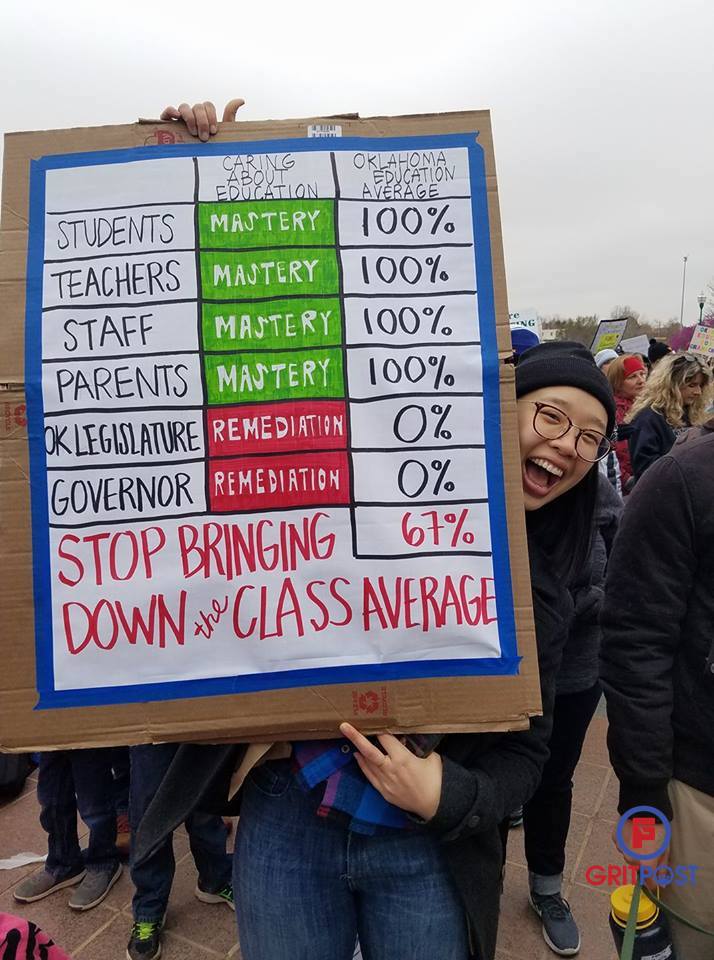 CARING ABOUT EDUCATION
OKLAHOMA EDUCATION AVERAGE
STUDENTS MASTERY 100%
TEACHERS MASTERY 100%
STAFF MASTERY 100%
PARENTS MASTERY 100%
OK LEGISLATURE REMEDIATION 0%
GOVERNOR REMEDIATION 0%
67%
STOP BRINGING
DOWN the CLASS AVERAGE
GRITPOST